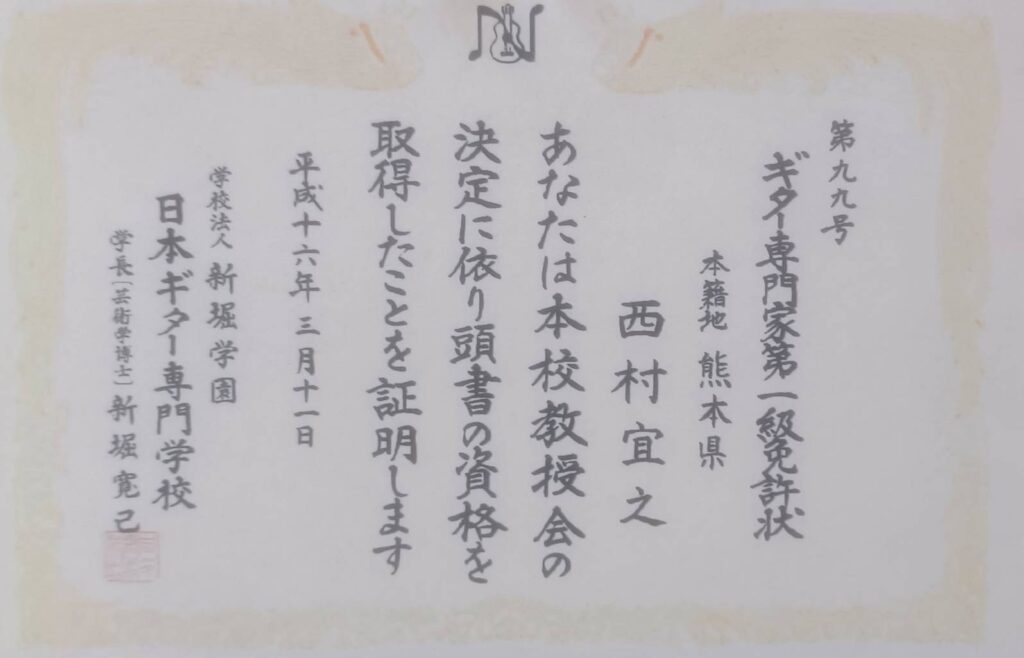 第九九号
ギター専門家第一級免許状
本籍地 熊本県
西村宜之
あなたは本校教授会の
決定に依り頭書の資格を
取得したことを証明します
平成十六年三月十一日
学校法人 新堀学園
日本ギター専門学校
学長〔芸術学博士〕新堀寛己